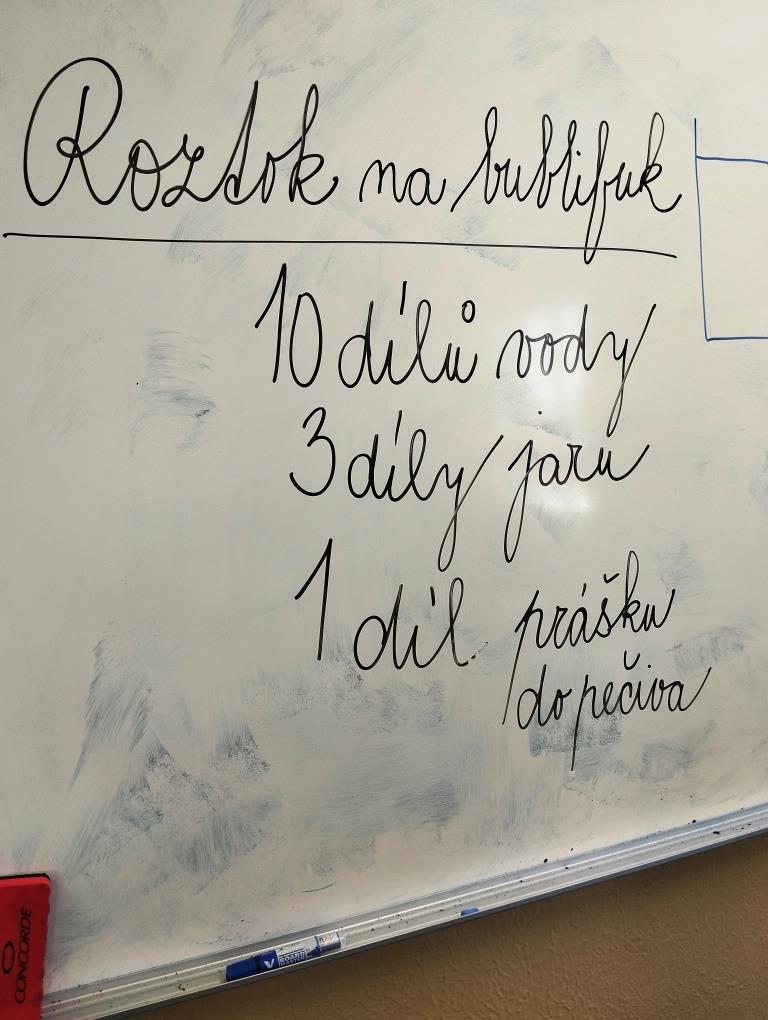 Roztok na bublifuk
10 dílů vody
3 díly jaru
1 díl prášku
do pečiva
CONCORDE
V BOARD